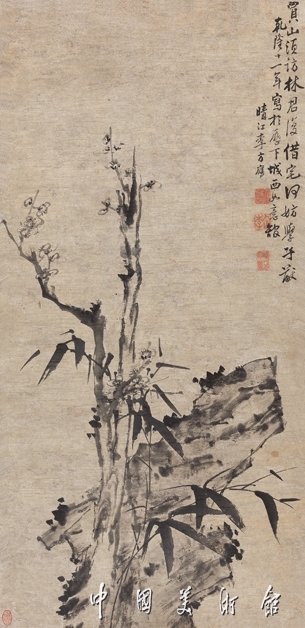 買山須訪林君復借宅何妨學子猷
乾隆十一年寫於歷下城西如意館
晴江李方膺
中國美術館